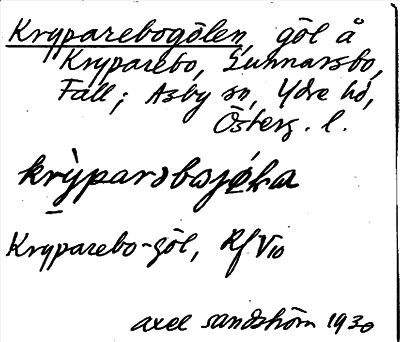 Kryparebogölen, göl å
Kryparebo, Gunnarsbo,
Fall; Asby sn, Ydre hd,
Österg. l.
Kryparebo-göl, Rf V10
Axel Sandström 1930